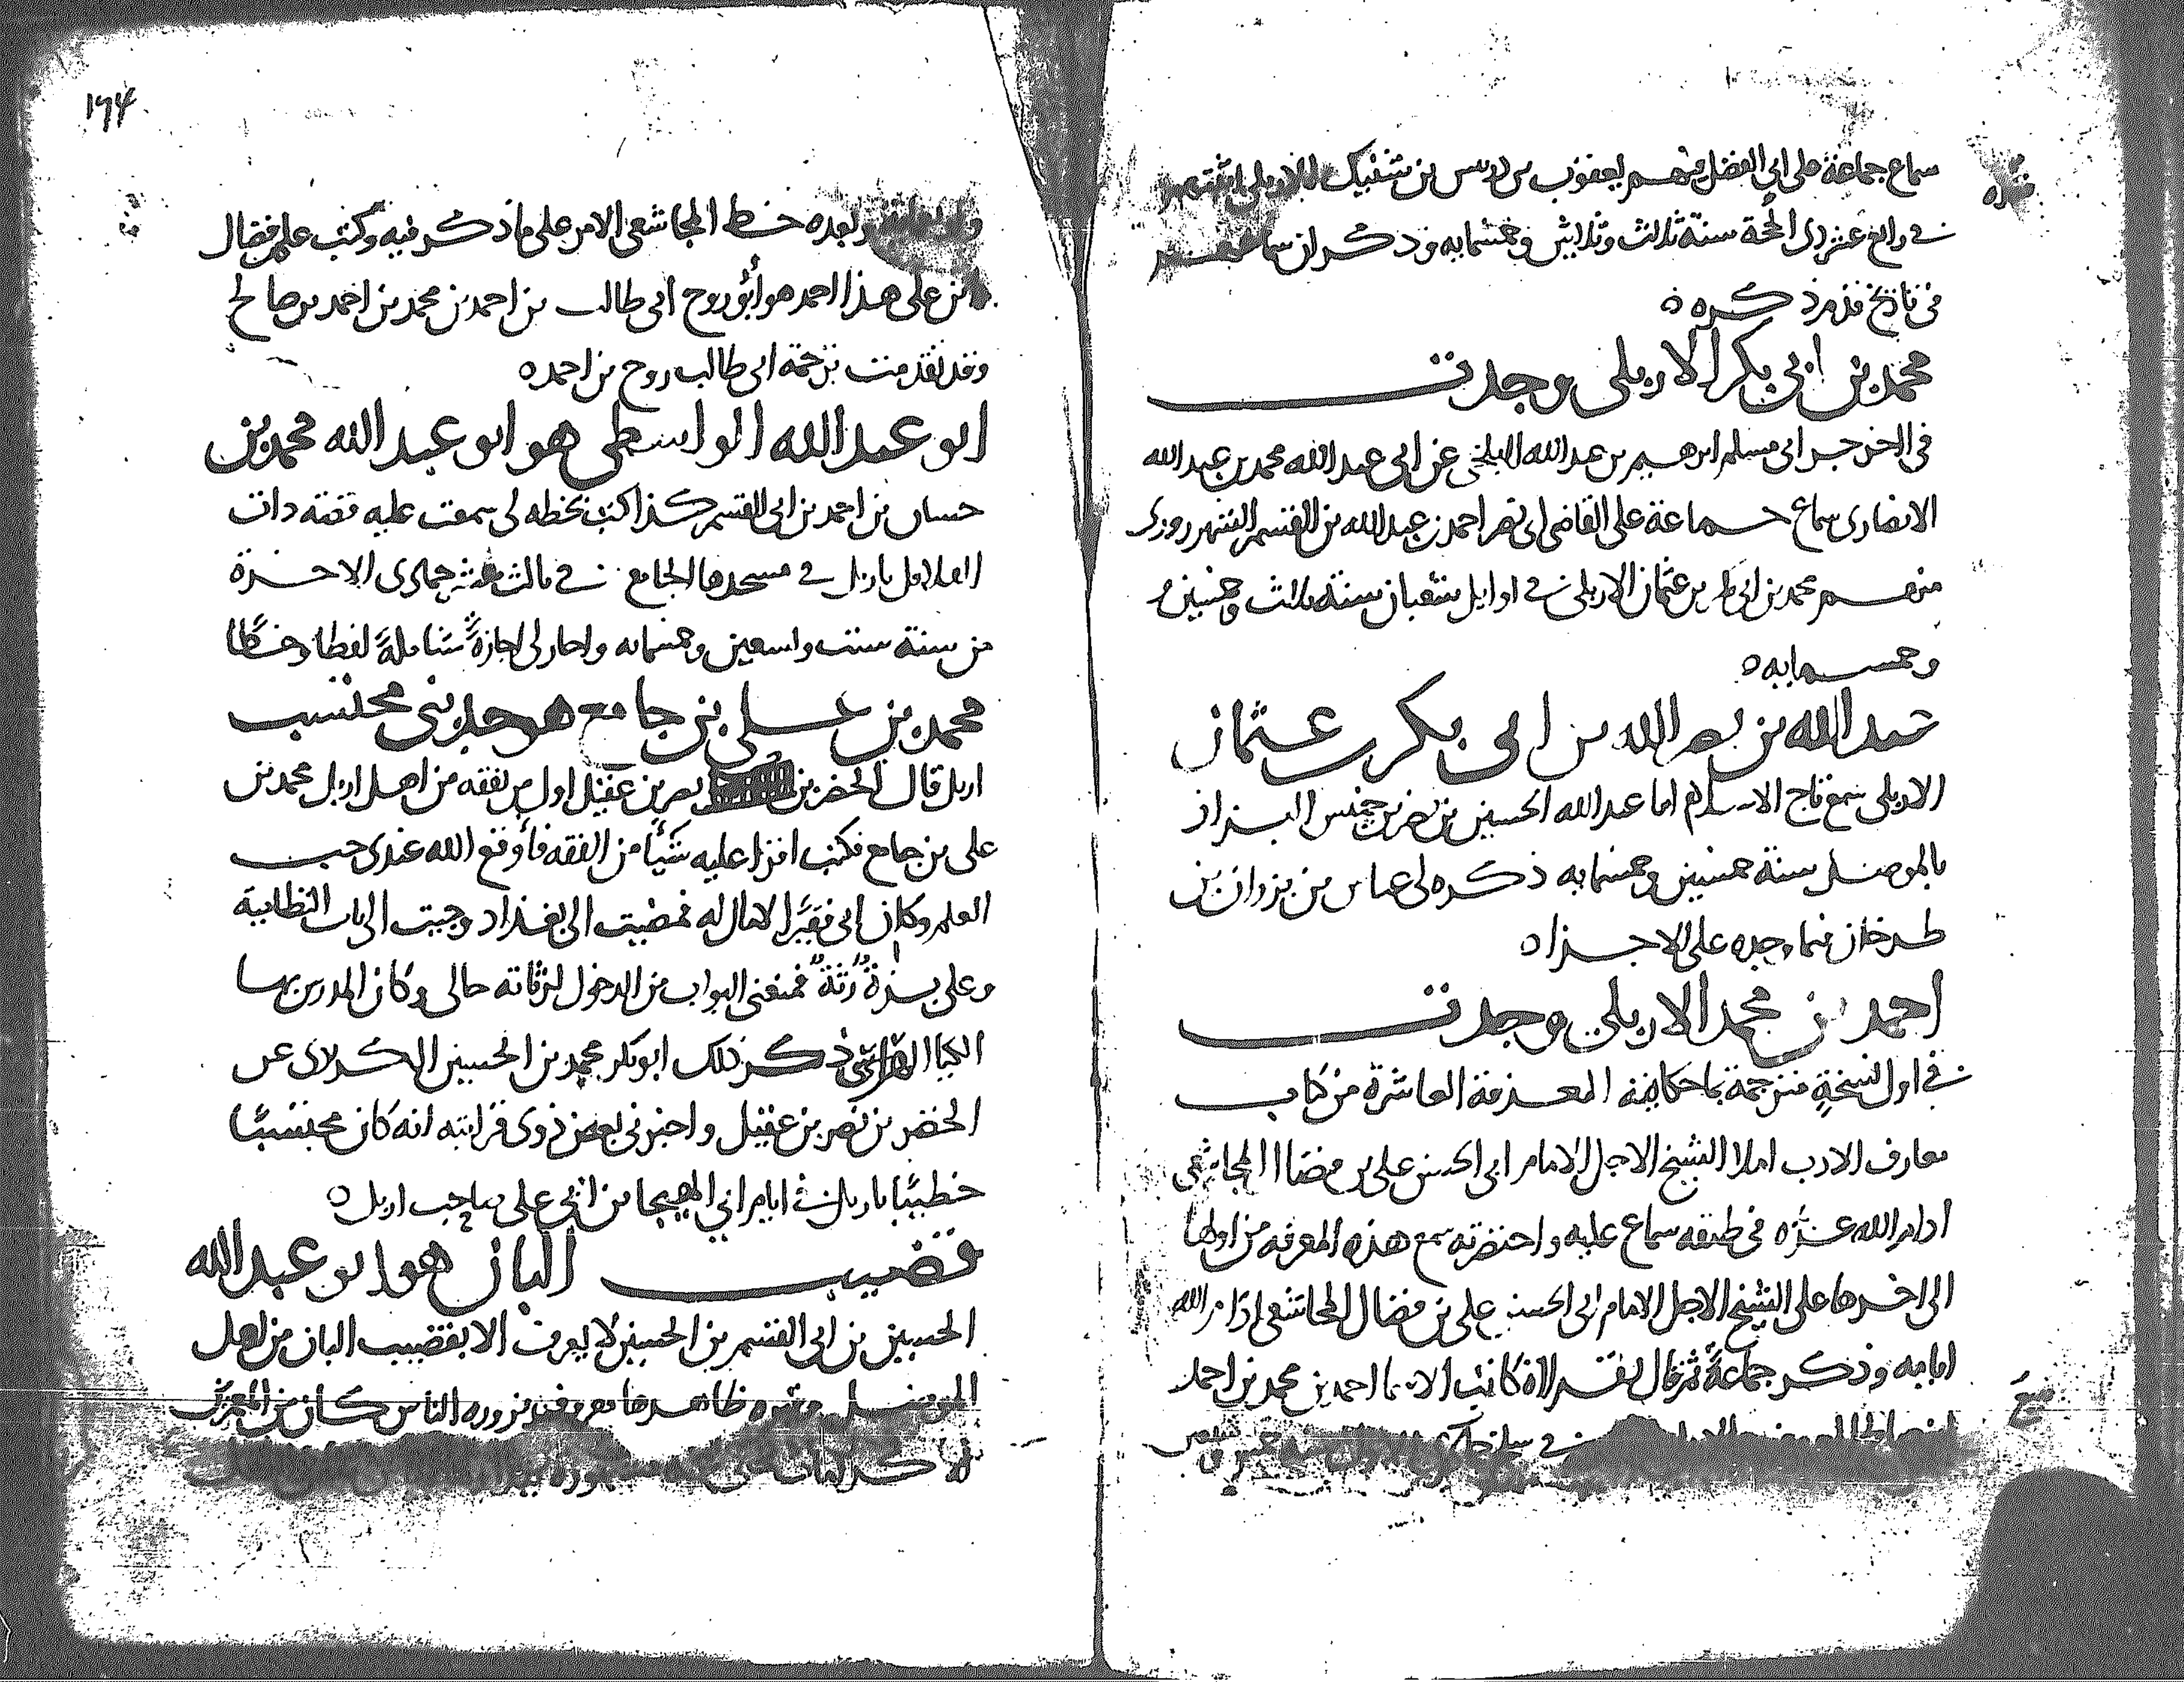 سماع جماعة على ابي الفضل منهم يعقوب بن ادريس بن شنبك الاربلي
في رابع عشر ذي الحجة سنة ثلاث وثلاثين وخمسمايه وذكر ان
في تاريخ قد مر ذكره ه
محمد بن ابي بكر الاربلي وجدت
في الجزء ابي مسلم ابرهيم بن عبد الله البلخي عن ابي عبد الله محمد بن عبد الله
الانصاري سماع جماعة على القاضي ابي نصر احمد بن عبد الله بن القسم الشهرزوري
منهم محمد بن ابي بن عثمان الاربلي في اوايل شعبان سنة ثلاث وخمسين
وخمسمايه ه
عبد الله بن نصر الله بن ابي بكر بن عثمان
الاربلي سمع تاج الاسلام ابا عبد الله الحسين بن نصر بن خميس البزاز
بالموصل سنة خمسين وخمسمايه ذكره لي عباس بن بزوان بن
طرخان فيما وجده على الاجزاء ه
احمد بن محمد الاربلي وجدت
في اول نسخة مترجمة بما حكايته المعرفة العاشرة من كتاب
معارف الادب املا الشيخ الاجل الامام ابي الحسن علي بن فضال المجاشعي
ادام الله عزه في طبقه سماع عليه واحضرته سمع هذه المعرفه من اولها
الى اخرها على الشيخ الاجل الامام ابي الحسن علي بن فضال المجاشعي ادام الله
ايامه وذكر جماعة ثم قال بقراة كاتب الاسما احمد بن محمد بن احمد
١٦٤
وبعده خط المجاشعي الامر على ما ذكر فيه وكتب علي بن فضال
بن علي هذا احمد هو ابو روح ابي طالب بن احمد بن محمد بن احمد بن صالح
وقد تقدمت ترجمة ابي طالب روح بن احمد ه
ابو عبد الله الواسطي هو ابو عبد الله محمد بن
حسان بن احمد بن ابي القسم كذا كتب بخطه لي سمعت عليه قصة ذات
القلاقل باربل في مسجدها الجامع في ثالث عشر جمادى الاخرة
من سنة ست وتسعين وخمسمايه واجاز لي اجازة شاملة لفظا وخطا
محمد بن علي بن جامع هو جد بني محتسب
اربل قال الخضر بن نصر بن عقيل اول من تفقه من اهل اربل محمد بن
علي بن جامع فكنت اقرا عليه شيأ من الفقه فأوقع الله عندي حب
العلم وكان ابي فقيرا لا مال له فمضيت الى بغداد وجيت الى باب النظامية
وعلي بزة رثة فمنعني البواب من الدخول لرثاثة حالي وكان المدرس بها
الكيا الهراسي ذكر ذلك ابو بكر محمد بن الحسين الكرلادي عن
الخضر بن نصر بن عقيل واخبرني بعض ذوي قرابته انه كان محتسبا
خطيبا باربل في ايام ابي الهيجا بن ابي علي صاحب اربل ه
قضيب البان هو ابو عبد الله
الحسين بن ابي القسم بن الحسين لا يعرف الا بقضيب البان من اهل
الموصل وقبره ظاهرها معروف يزوره الناس كان من
له كرامات